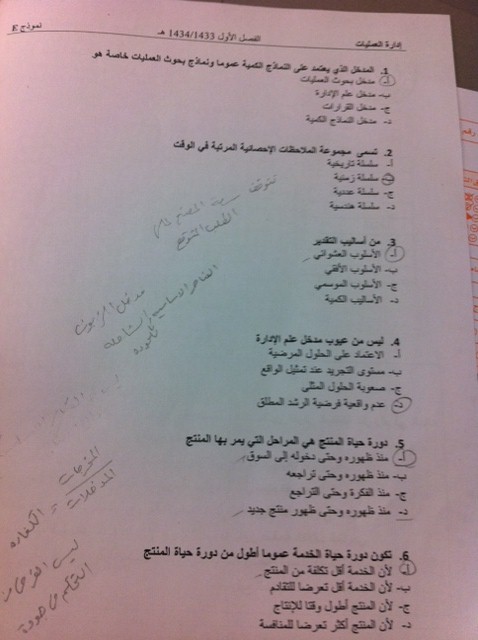 إدارة العمليات الفصل الأول 1434/1433 هـ نموذج E
1. المدخل الذي يعتمد على النماذج الكمية عموما ونماذج بحوث العمليات خاصة هو
أ- مدخل بحوث العمليات
ب- مدخل علم الإدارة
ج- مدخل القرارات
د- مدخل النماذج الكمية
2. تسمى مجموعة الملاحظات الإحصائية المرتبة في الوقت
أ- سلسلة تاريخية
ب- سلسلة زمنية
ج- سلسلة عددية
د- سلسلة هندسية
3. من أساليب التقدير
أ- الأسلوب العشوائي
ب- الأسلوب الأفقي
ج- الأسلوب الموسمي
د- الأساليب الكمية
4. ليس من عيوب مدخل علم الإدارة
أ- الاعتماد على الحلول المرضية
ب- مستوى التجريد عند تمثيل الواقع
ج- صعوبة الحلول المثلى
د- عدم واقعية فرضية الرشد المطلق
5. دورة حياة المنتج هي المراحل التي يمر بها المنتج
أ- منذ ظهوره وحتى دخوله إلى السوق
ب- منذ ظهوره وحتى تراجعه
ج- منذ الفكرة وحتى التراجع
د- منذ ظهوره وحتى ظهور منتج جديد
6. تكون دورة حياة الخدمة عموما أطول من دورة حياة المنتج
أ- لأن الخدمة أقل تكلفة من المنتج
ب- لأن الخدمة أقل تعرضا للتقادم
ج- لأن المنتج أطول وقتا للإنتاج
د- لأن المنتج أكثر تعرضا للمنافسة
تتوقف سعة المصنع على
الطلب المتوقع
مدخل
المخرجات
المدخلات = الكفاءه
رقم